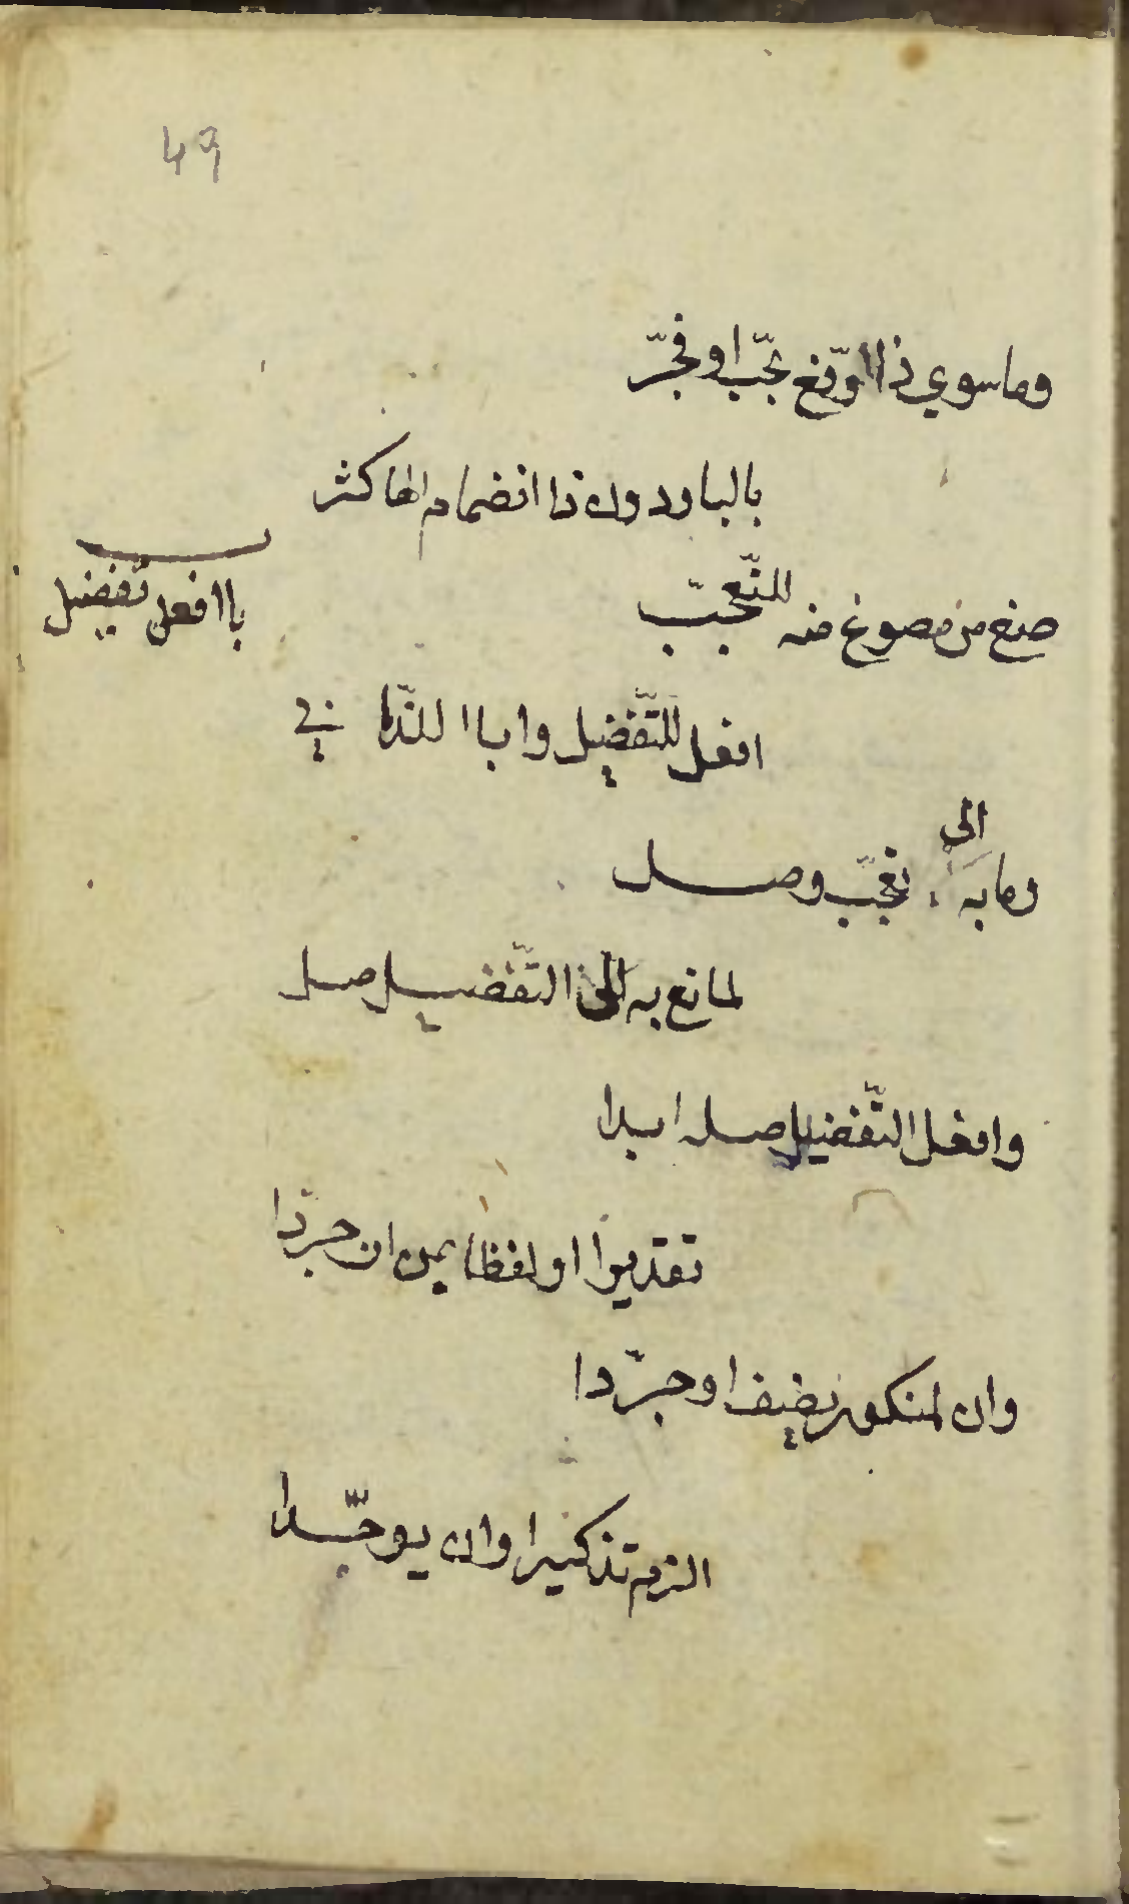 49
وما سوي ذا اوقع بحب او فجر
بالبا ودون ذا انضمام الحا كثر
باا افعل تفضيل
صغ من مصوغ منه للتعجب
افعل للتفضيل واباا للذا
وما به الى تعجب وصل
لمانع به الى التفضيل صل
وافعل التفضيل صله ابدا
تقديرا او لفظا بمن ان جردا
وان لمنكور يضيف او جردا
الزم تذكيرا وان يوحدا